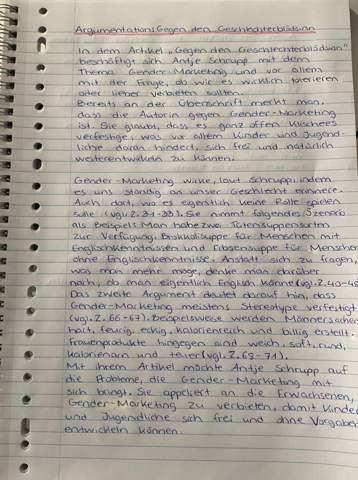 Argumentations Gegen den Geschlechterblödsinn
In dem Artikel „Gegen den Geschlechterblödsinn"
beschäftigt sich Antje Schrupp mit dem
Thema Gender-Marketing und vor allem
mit der Frage, ob wir es wirklich tolerieren
oder lieber verbieten sollten.
Bereits an der Überschrift merkt man,
dass die Autorin gegen Gender-Marketing
ist. Sie glaubt, dass es ganz offen Klischees
verfestige, was vor allem Kinder und Jugend-
liche daran hindert, sich frei und natürlich
weiterentwickeln zu können.
Gender-Marketing wirke, laut Schrupp, indem
es uns ständig an unser Geschlecht erinnere.
Auch dort, wo es eigentlich keine Rolle spielen
solle (vgl. Z. 31-33). Sie nimmt folgendes Szenario
als Beispiel: Man habe zwei Tütensuppensorten
zur Verfügung. Brokkolisuppe für Menschen mit
Englischkenntnissen und Erbsensuppe für Menschen
ohne Englischkenntnisse. Anstatt sich zu fragen,
was man mehr möge, denke man darüber
nach, ob man eigentlich Englisch könne (vgl. Z. 40-
Das zweite Argument deutet darauf hin, dass
Gender-Marketing meistens Stereotype verfestigt
(vgl. Z. 66-67). Beispielsweise werden Männersachen
hart, feurig, eckig, kalorienreich und billig erstellt.
Frauenprodukte hingegen sind weich, soft, rund,
kalorienarm und teuer (vgl. Z. 69-71).
Mit ihrem Artikel möchte Antje Schrupp auf
die Probleme, die Gender-Marketing mit
sich bringt. Sie appeliert an die Erwachsenen,
Gender-Marketing zu verbieten, damit Kinder
und Jugendliche sich frei und ohne Vorgaben
entwickeln können.